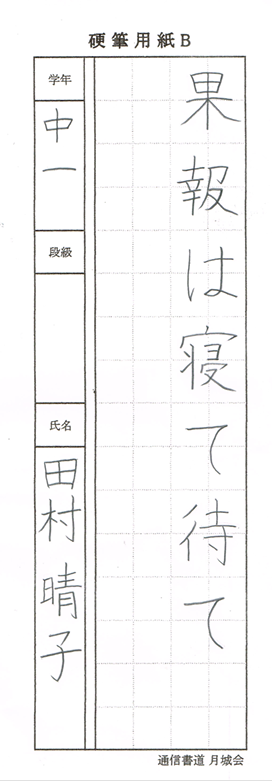 硬筆用紙B
果報は寝て待て
学年
中一
段級
氏名
田村 晴子
通信書道 月城会